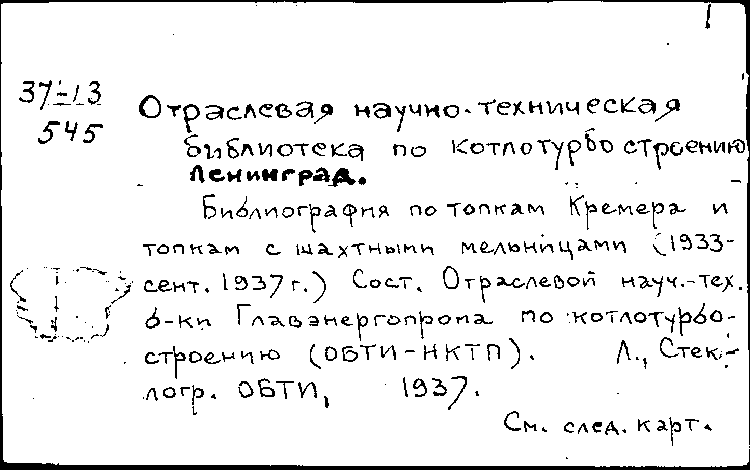 1
37-13
545
Отраслевая научно-техническая
библиотека по котлотурбостроению
Ленинград.
Библиография по топкам Кремера и
топкам с шахтными мельницами (1933-
сент. 1937 г.) Сост. Отраслевой науч.-тех.
б-ки Главэнергопрома по котлотурбо-
строению (ОБТИ-НКТП). Л., Стек-
логр. ОБТИ, 1937.
См. след. карт.